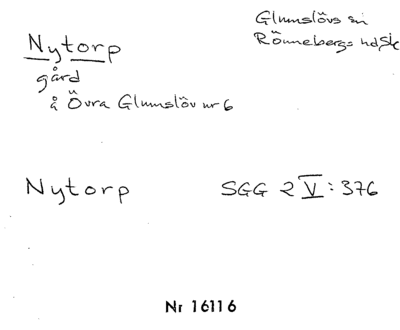 Glumslövs sn
Rönnebergs hd, Sk
Nytorp
gård
å Övra Glumslöv nr 6
Nytorp SGG 2 V: 376
Nr 16116